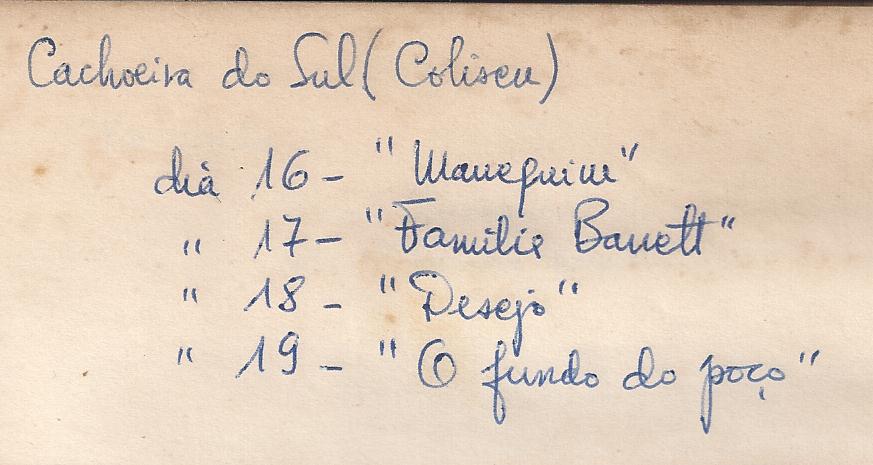 Cachoeira do Sul (Coliseu)
dia 16 - "Manequim"
" 17 - "Familia Barrett"
" 18 - "Desejo"
" 19 - "O fundo do poço"